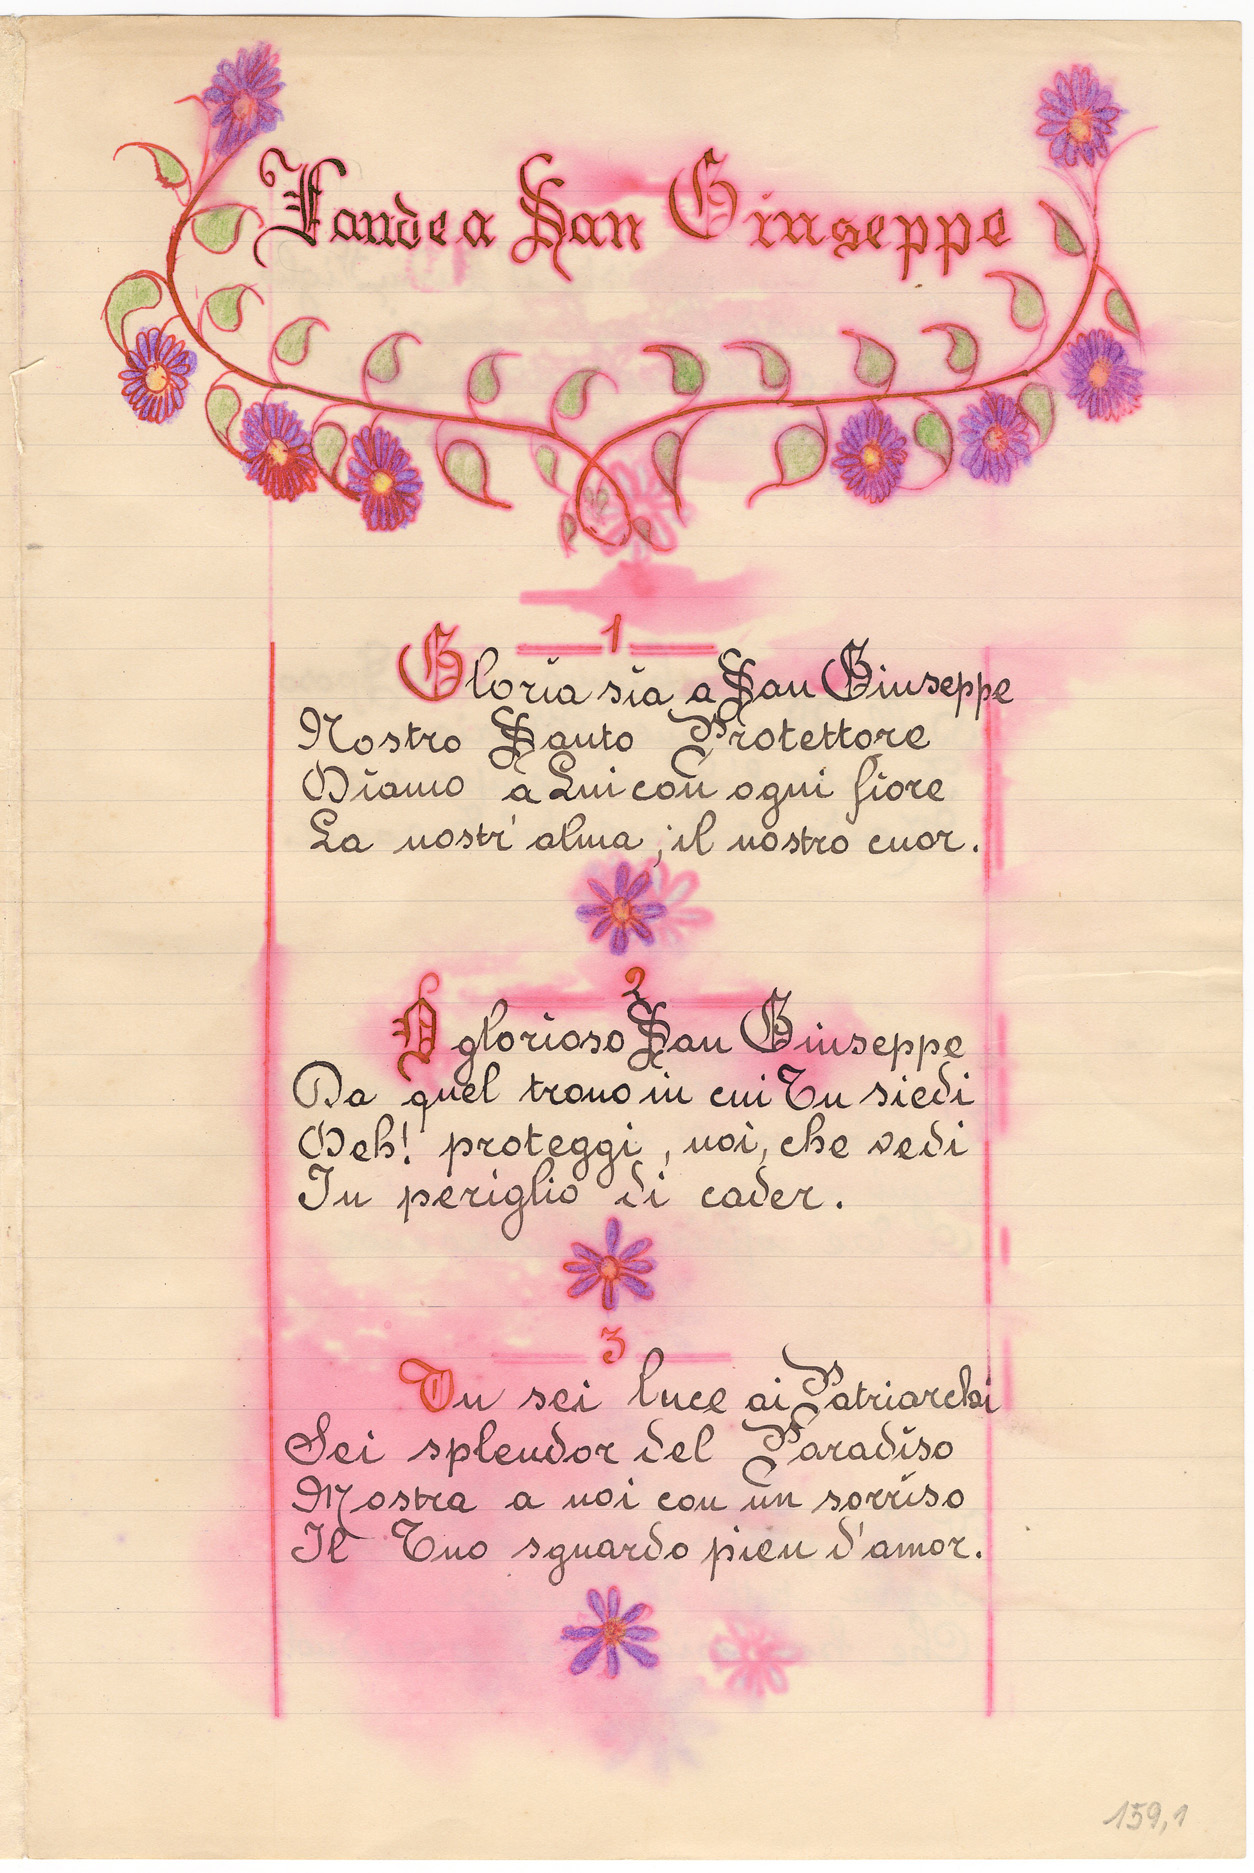 Laude a San Giuseppe
1
Gloria sia a San Giuseppe
Nostro Santo Protettore
Diamo à Lui con ogni fiore
La nostr' alma, il nostro cuor.
2
O glorioso San Giuseppe
Da quel trono in cui Tu siedi
Deh! proteggi, noi, che vedi
In periglio di cader.
3
Tu sei luce ai Patriarchi
Sei splendor del Paradiso
Mostra a noi con un sorriso
Il Tuo sguardo pien d'amor.
159,1